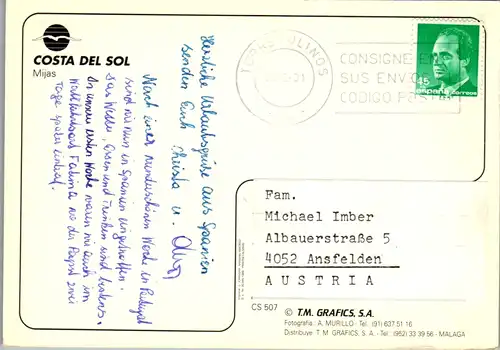 COSTA DEL SOL
Mijas
Herzliche Urlaubsgrüße aus Spanien
senden Euch Christa u.
Nach einer wunderschönen Woche in Portugal
sind wir nun in Spanien eingetroffen.
Das Wetter, Essen und Trinken sind bestens.
In unserer ersten Woche waren wir auch im
Wallfahrtsort Fatima wo der Papst zwei
Tage später eintraf.
TORREMOLINOS
CONSIGNE EN
SUS ENVIOS
CODIGO POSTAL
45
españa
CORREOS
Fam.
Michael Imber
Albauerstraße 5
4052 Ansfelden
AUSTRIA
CS 507
© T.M. GRAFICS, S.A.
Fotografia: A. MURILLO - Tel. (91) 637 51 16
Distribuye: T. M. GRAFICS, S.A. - Tel. (952) 33 39 56 - MALAGA